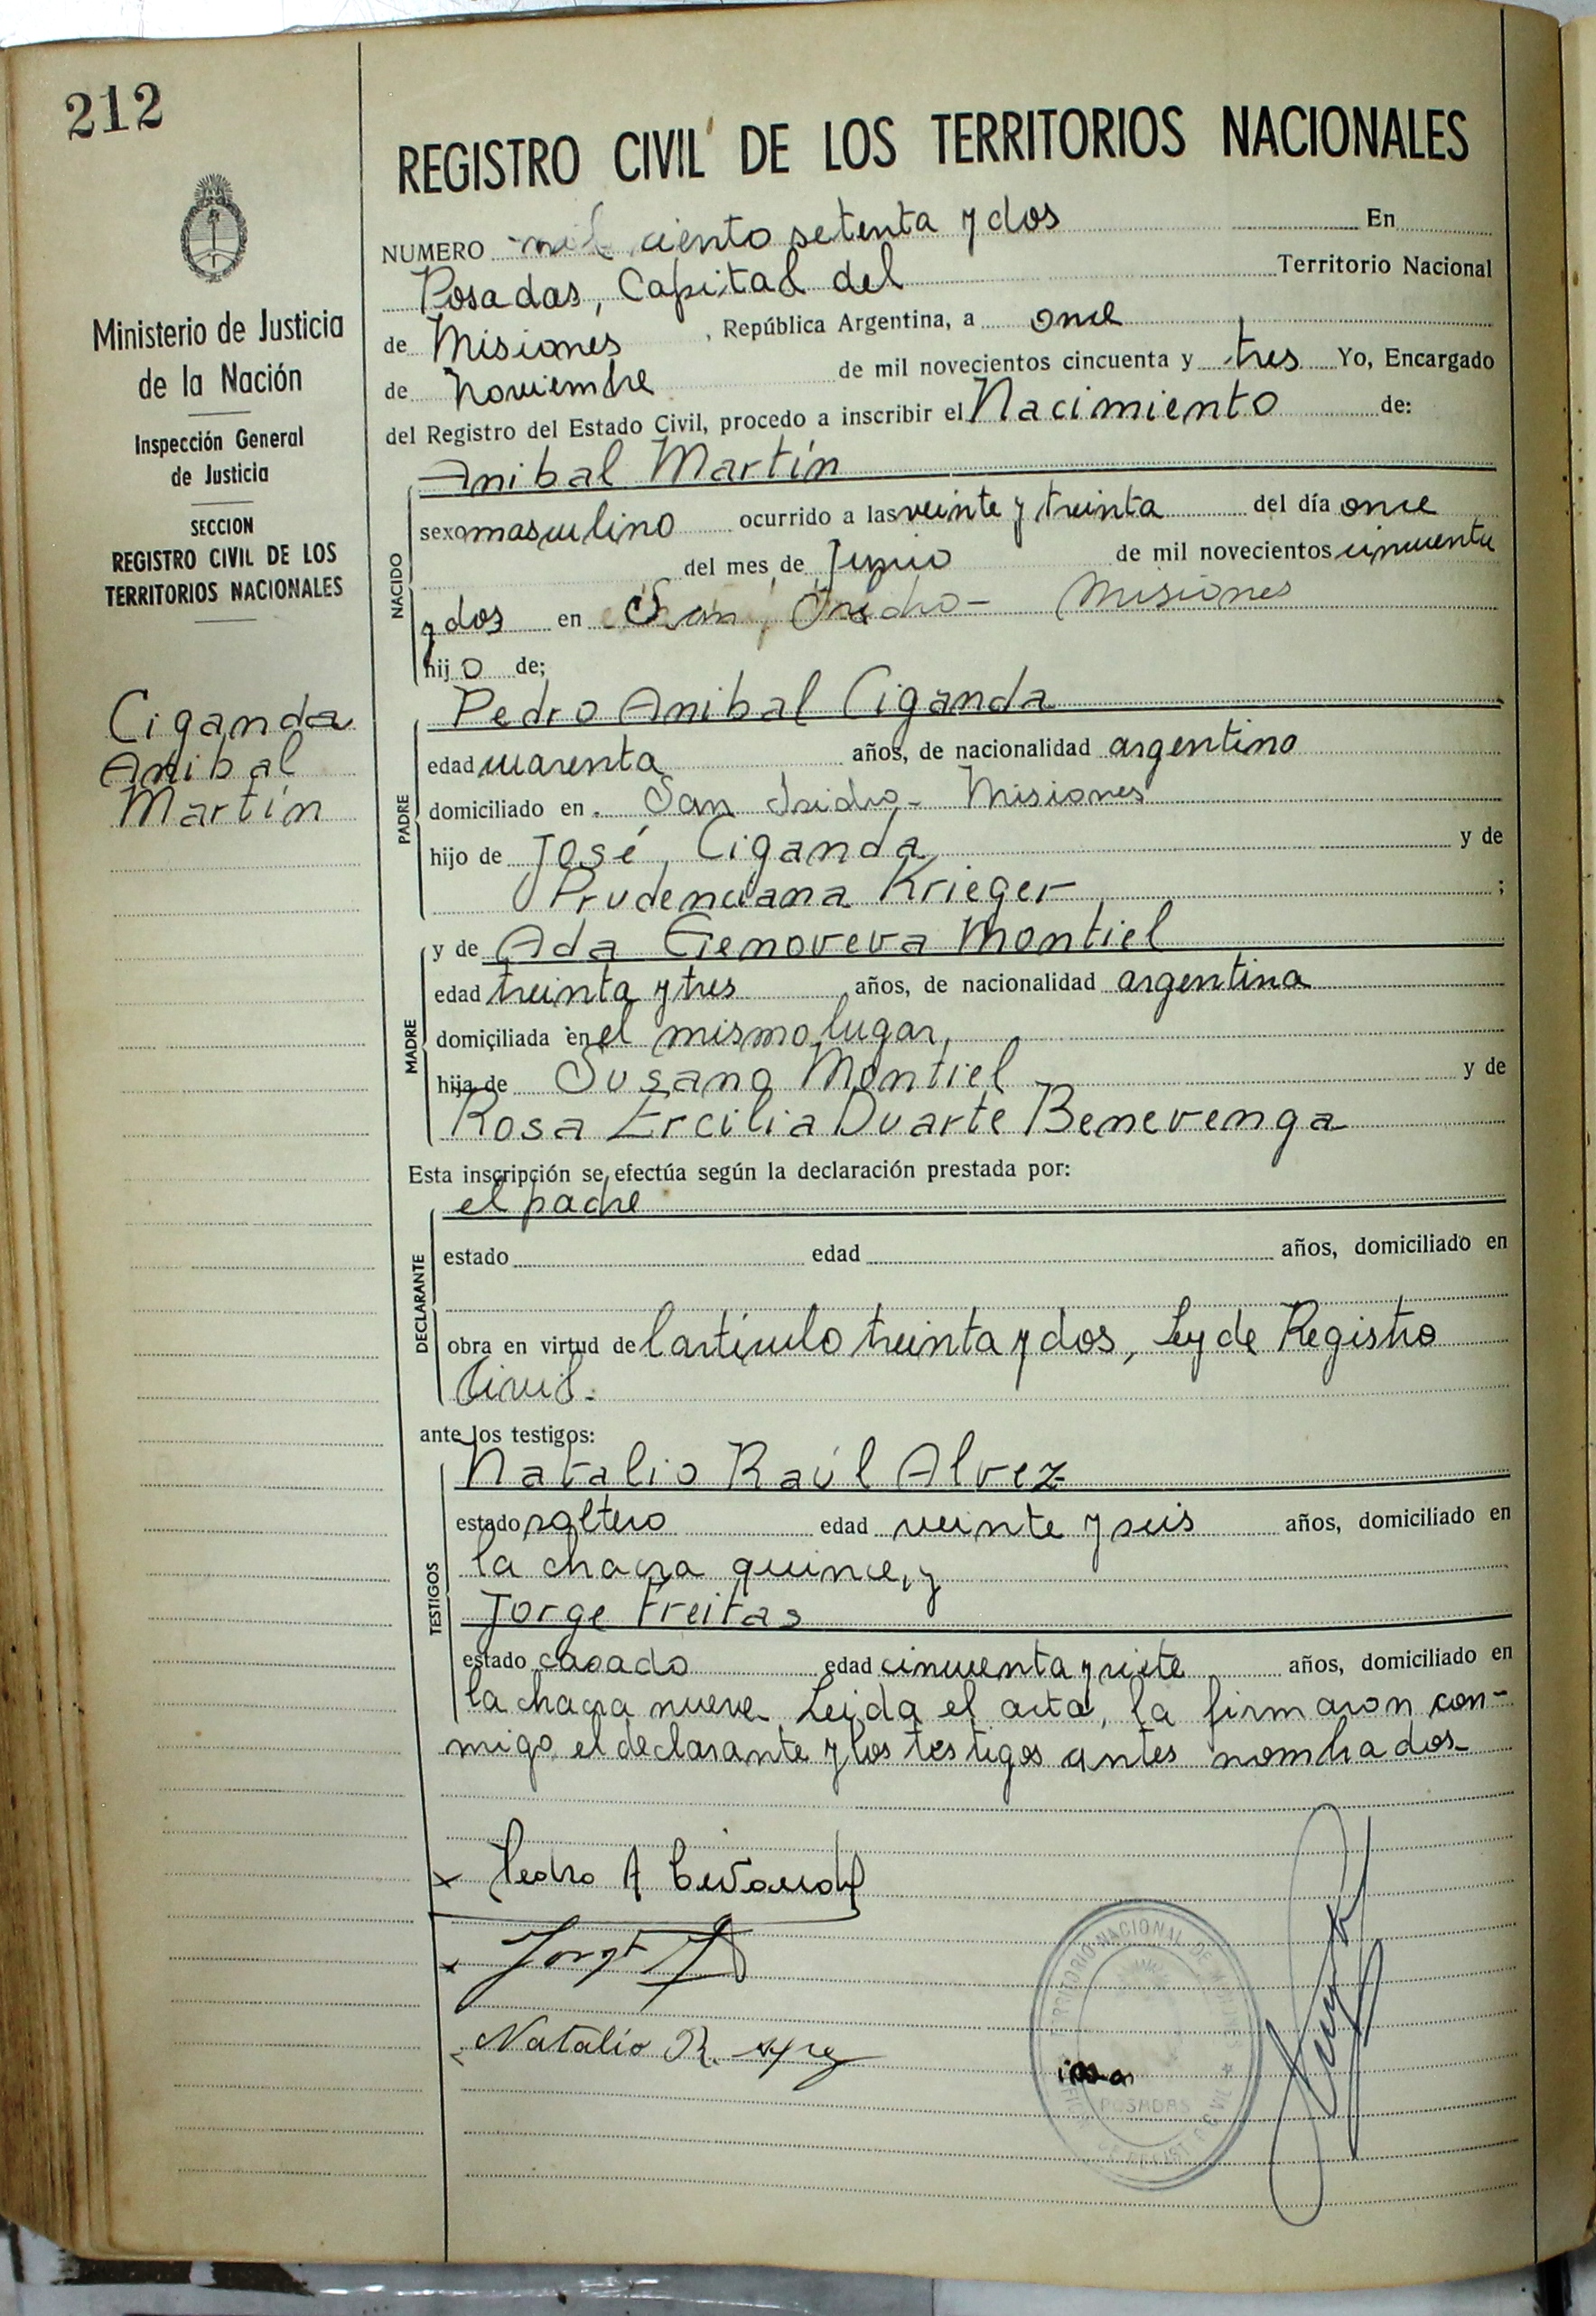 212
REGISTRO CIVIL DE LOS TERRITORIOS NACIONALES
Ministerio de Justicia
de la Nación
Inspección General
de Justicia
SECCION
REGISTRO CIVIL DE LOS
TERRITORIOS NACIONALES
Ciganda
Anibal
Martín
NUMERO mil ciento setenta y dos En
Posadas, Capital del Territorio Nacional
de Misiones, República Argentina, a once
de Noviembre de mil novecientos cincuenta y tres Yo, Encargado
del Registro del Estado Civil, procedo a inscribir el Nacimiento de:
NACIDO
Anibal Martín
sexo masculino ocurrido a las veinte y treinta del día once
del mes de Junio de mil novecientos cincuenta
y dos en San Isidro - Misiones
hijo de;
PADRE
Pedro Anibal Ciganda
edad cuarenta años, de nacionalidad argentino
domiciliado en San Isidro - Misiones
hijo de José Ciganda y de
Prudenciana Krieger ;
MADRE
y de Ada Genoveva Montiel
edad treinta y tres años, de nacionalidad argentina
domiciliada en el mismo lugar,
hija de Susano Montiel y de
Rosa Ercilia Duarte Benevenga
Esta inscripción se efectúa según la declaración prestada por:
DECLARANTE
el padre
estado edad años, domiciliado en
obra en virtud del artículo treinta y dos, Ley de Registro
Civil.
ante los testigos:
TESTIGOS
Natalio Raúl Alvez
estado soltero edad veinte y seis años, domiciliado en
la chacra quince, y
Jorge Freitas
estado casado edad cincuenta y siete años, domiciliado en
la chacra nueve. Leida el acta, la firmaron con-
migo el declarante y los testigos antes nombrados-
x Pedro A Ciganda
x Jorge
Natalio R.
TERRITORIO NACIONAL DE MISIONES
POSADAS